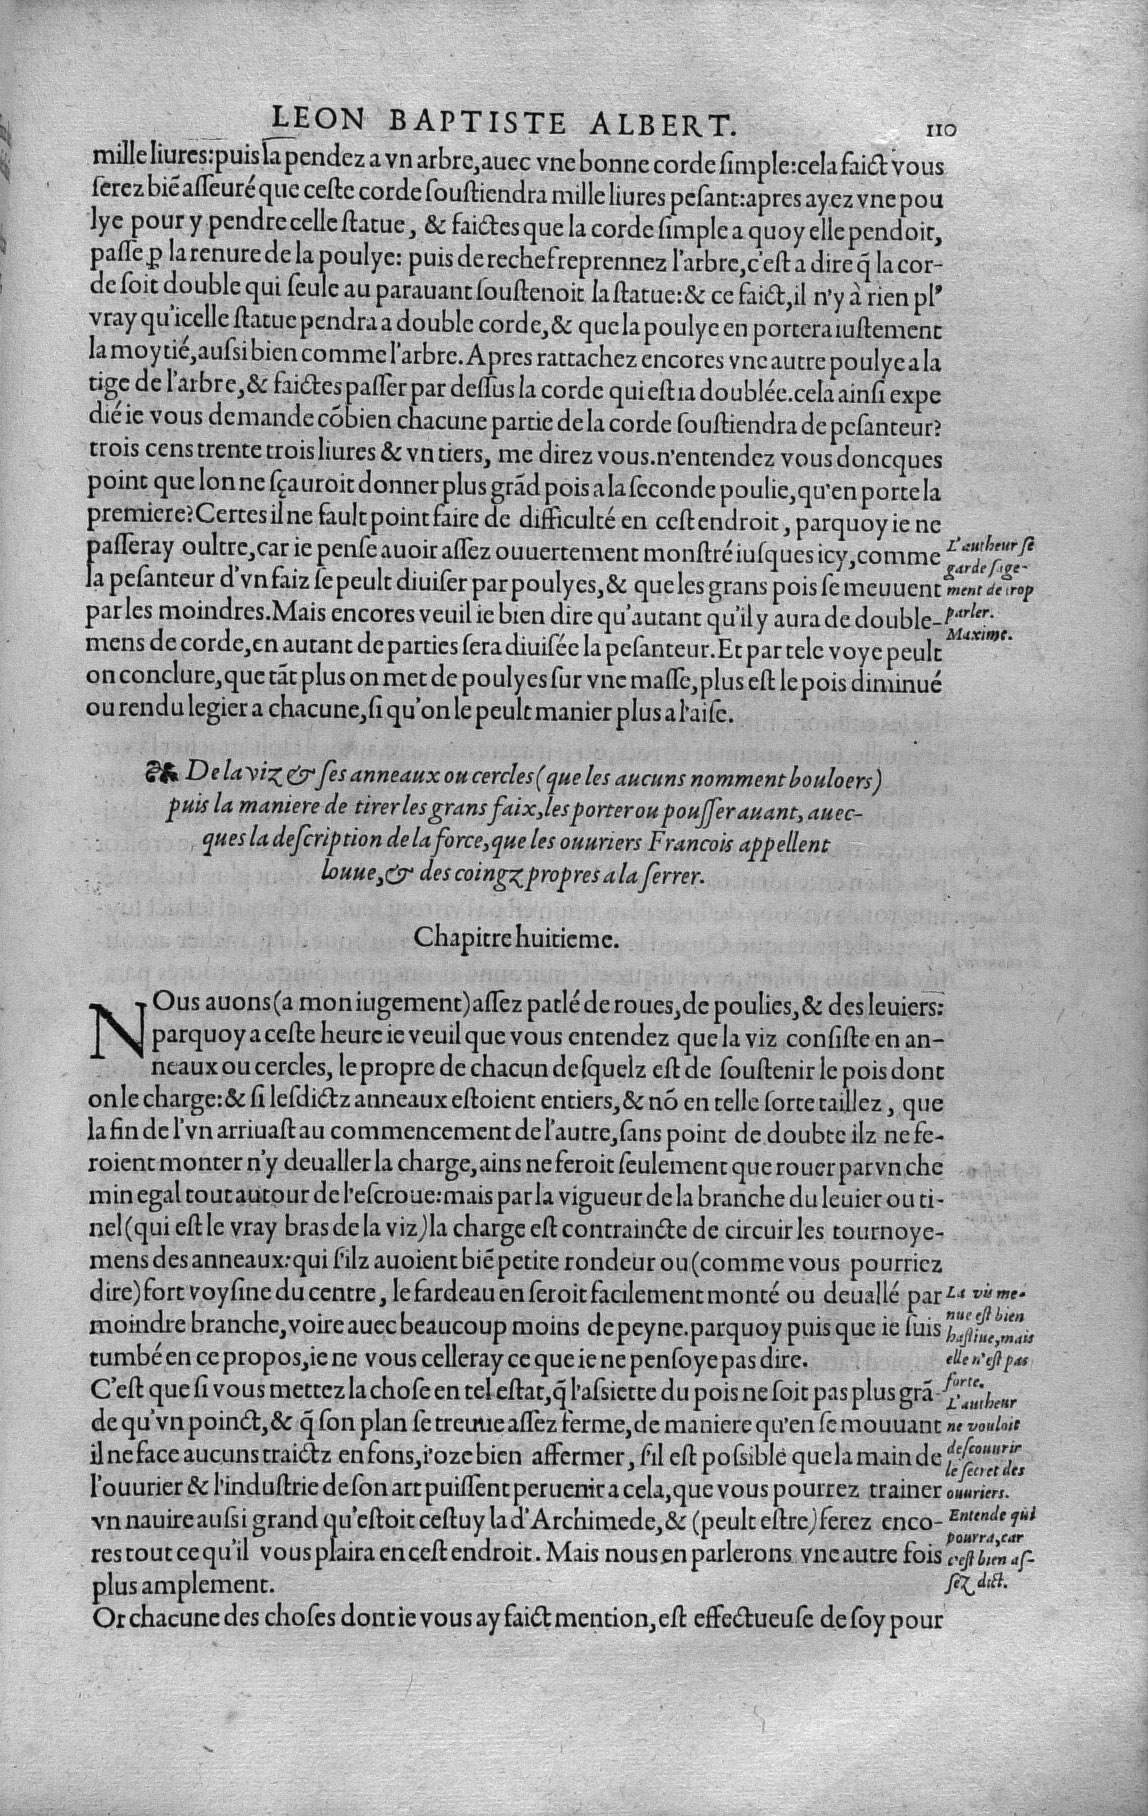 LEON BAPTISTE ALBERT. 110
mille liures:puis la pendez a vn arbre,auec vne bonne corde simple:cela faict vous
serez biē asseuré que ceste corde soustiendra mille liures pesant:apres ayez vne pou
lye pour y pendre celle statue, & faictes que la corde simple a quoy elle pendoit,
passe ꝑ la renure de la poulye: puis derechef reprennez l'arbre,c'est a dire q̃ la cor-
de soit double qui seule au parauant soustenoit la statue:& ce faict,il n'y à rien pl'
vray qu'icelle statue pendra a double corde,& que la poulye en portera iustement
la moytié,aussi bien comme l'arbre.Apres rattachez encores vne autre poulye a la
tige de l'arbre,& faictes passer par dessus la corde qui est ia doublée.cela ainsi expe
dié ie vous demande cōbien chacune partie de la corde soustiendra de pesanteur?
trois cens trente trois liures & vn tiers, me direz vous.n'entendez vous doncques
point que lon ne sçauroit donner plus grād pois a la seconde poulie,qu'en porte la
premiere?Certes il ne fault point faire de difficulté en cest endroit, parquoy ie ne
passeray oultre,car ie pense auoir assez ouuertement monstré iusques icy,comme
la pesanteur d'vn faiz se peult diuiser par poulyes,& que les grans pois se meuuent
par les moindres.Mais encores veuil ie bien dire qu'autant qu'il y aura de double-
mens de corde,en autant de parties sera diuisée la pesanteur.Et par tele voye peult
on conclure,que tāt plus on met de poulyes sur vne masse,plus est le pois diminué
ou rendu legier a chacune,si qu'on le peult manier plus a l'aise.
L'autheur se
garde sage-
ment de trop
parler.
Maxime.
De la viz & ses anneaux ou cercles (que les aucuns nomment bouloers)
puis la maniere de tirer les grans faix,les porter ou pousser auant, auec-
ques la description de la force,que les ouuriers Francois appellent
louue,& des coingz propres a la serrer.
Chapitre huitieme.
NOus auons(a mon iugement)assez parlé de roues,de poulies,& des leuiers:
parquoy a ceste heure ie veuil que vous entendez que la viz consiste en an-
neaux ou cercles, le propre de chacun desquelz est de soustenir le pois dont
on le charge:& si lesdictz anneaux estoient entiers,& nō en telle sorte taillez, que
la fin de l'vn arriuast au commencement de l'autre,sans point de doubte ilz ne fe-
roient monter n'y deualler la charge,ains ne feroit seulement que rouer par vn che
min egal tout autour de l'escroue:mais par la vigueur de la branche du leuier ou ti-
nel(qui est le vray bras de la viz)la charge est contraincte de circuir les tournoye-
mens des anneaux:qui s'ilz auoient biē petite rondeur ou(comme vous pourriez
dire)fort voysine du centre, le fardeau en seroit facilement monté ou deuallé par
moindre branche,voire auec beaucoup moins de peyne.parquoy puis que ie suis
tumbé en ce propos,ie ne vous celleray ce que ie ne pensoye pas dire.
C'est que si vous mettez la chose en tel estat,q̃ l'assiette du pois ne soit pas plus grā-
de qu'vn poinct,& q̃ son plan se treuue assez ferme,de maniere qu'en se mouuant
il ne face aucuns traictz en fons,i'oze bien affermer, s'il est possible que la main de
l'ouurier & l'industrie de son art puissent peruenir a cela,que vous pourrez trainer
vn nauire aussi grand qu'estoit cestuy la d'Archimede,& (peult estre)ferez enco-
res tout ce qu'il vous plaira en cest endroit. Mais nous en parlerons vne autre fois
plus amplement.
Or chacune des choses dont ie vous ay faict mention,est effectueuse de soy pour
La vis me-
nue est bien
hastiue,mais
elle n'est pas
forte.
L'autheur
ne vouloit
descouurir
le secret des
ouuriers.
Entende qui
pourra,car
c'est bien as-
sez dict.